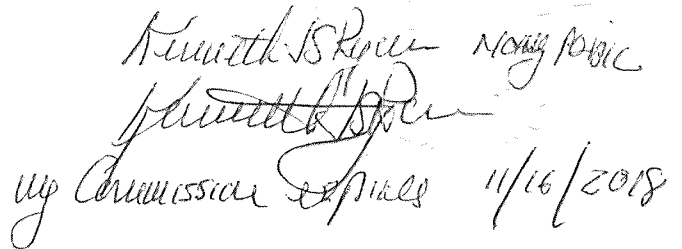 Kenneth Notary Public
Kenneth
my Commission expires 11/16/2018